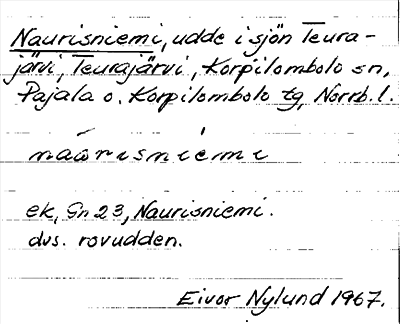 Naurisniemi, udde i sjön Teura-
järvi, Teurajärvi, Korpilombolo sn,
Pajala o. Korpilombolo tg, Norrb. l.
náu̯risniemi
ek, Gn 23, Naurisniemi.
dvs. rovudden.
Eivor Nylund 1967.